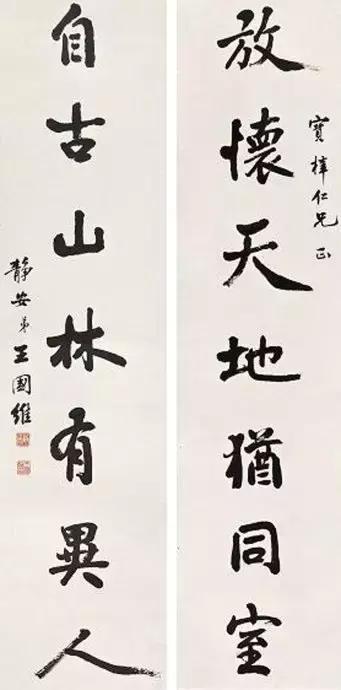 放懷天地猶同室
寶梓仁兄 正
自古山林有異人
靜安弟王國維